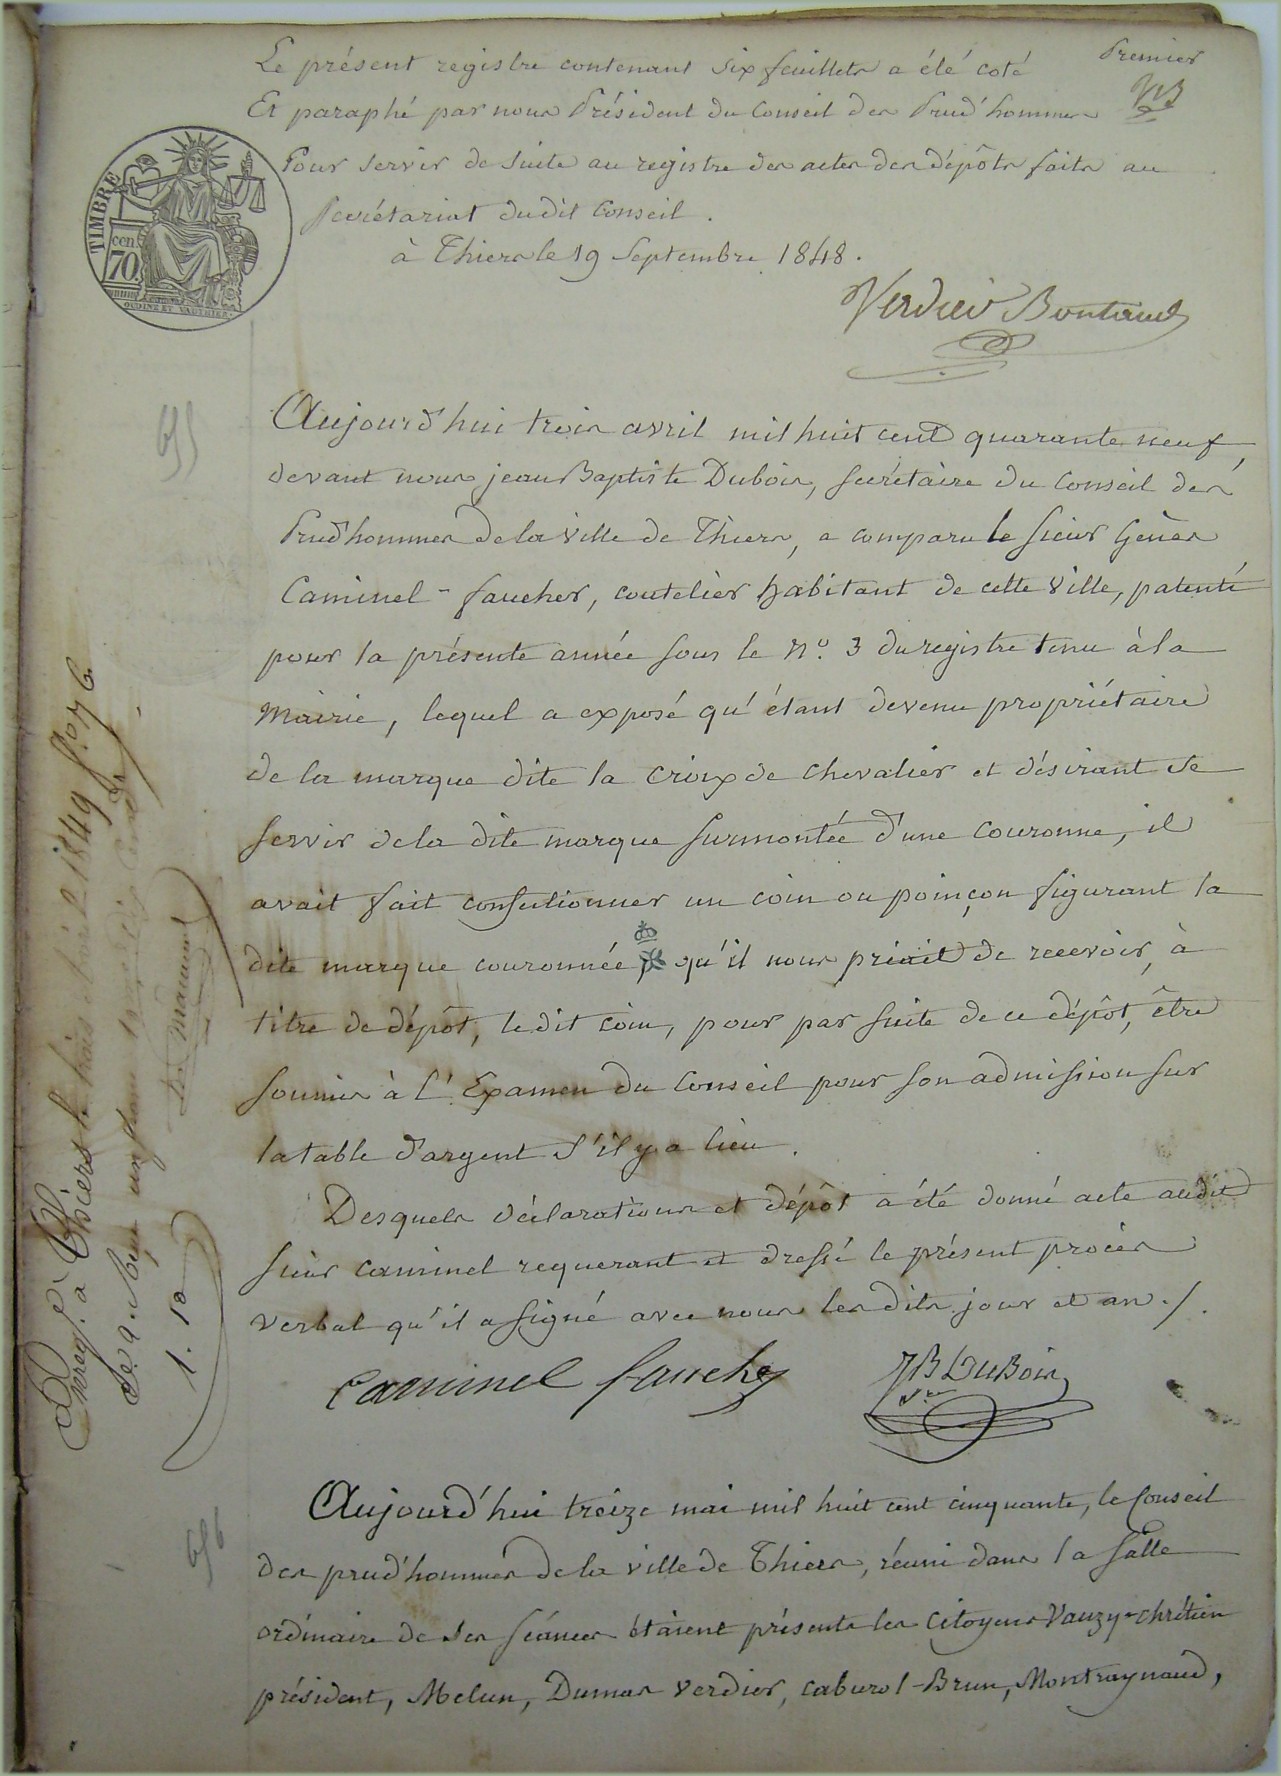 Premier
VB
Le présent registre contenant six feuillets a été coté
Et paraphé par nous Président du Conseil des Prud'hommes
Pour servir de suite au registre des actes des dépôts faits au
secrétariat dudit Conseil.
à Thiers le 19 Septembre 1848.
TIMBRE
cen.
70
OUDINE ET VAUTHIER.
Verdier Bontaud
655
Aujourd'hui trois avril mil huit cent quarante neuf,
devant nous jean Baptiste Dubois, secrétaire du Conseil des
Prud'hommes de la ville de Thiers, a comparu le sieur Genès
Caminel-faucher, coutelier habitant de cette Ville, patenté
pour la présente année sous le N.º 3 du registre tenu à la
Mairie, lequel a exposé qu'étant devenu propriétaire
de la marque dite la Croix de Chevalier et désirant se
servir de la dite marque surmontée d'une Couronne, il
avait fait confectionner un coin ou poinçon figurant la
dite marque couronnée qu'il nous priait de recevoir, à
titre de dépôt, le dit coin, pour par suite de ce dépôt, être
soumis à l'Examen du Conseil pour son admission sur
la table d'argent s'il y a lieu.
Desquels déclarations et dépôt a été donné acte audit
sieur Caminel requerant et dressé le présent procès
verbal qu'il a signé avec nous les dits jour et an ./.
Caminel faucher
JB DuBois
Enreg.é à Thiers le trois avril 1849 f.º 76
reçu un franc dix
1. 10
656
Aujourd'hui treize mai mil huit cent cinquante, le Conseil
des prud'hommes de la ville de Thiers, réuni dans la salle
ordinaire de ses séances étaient présents les Citoyens Vauzy-chrétien
président, Melun, Dumas Verdier, Caburol-Brun, Montraynaud,